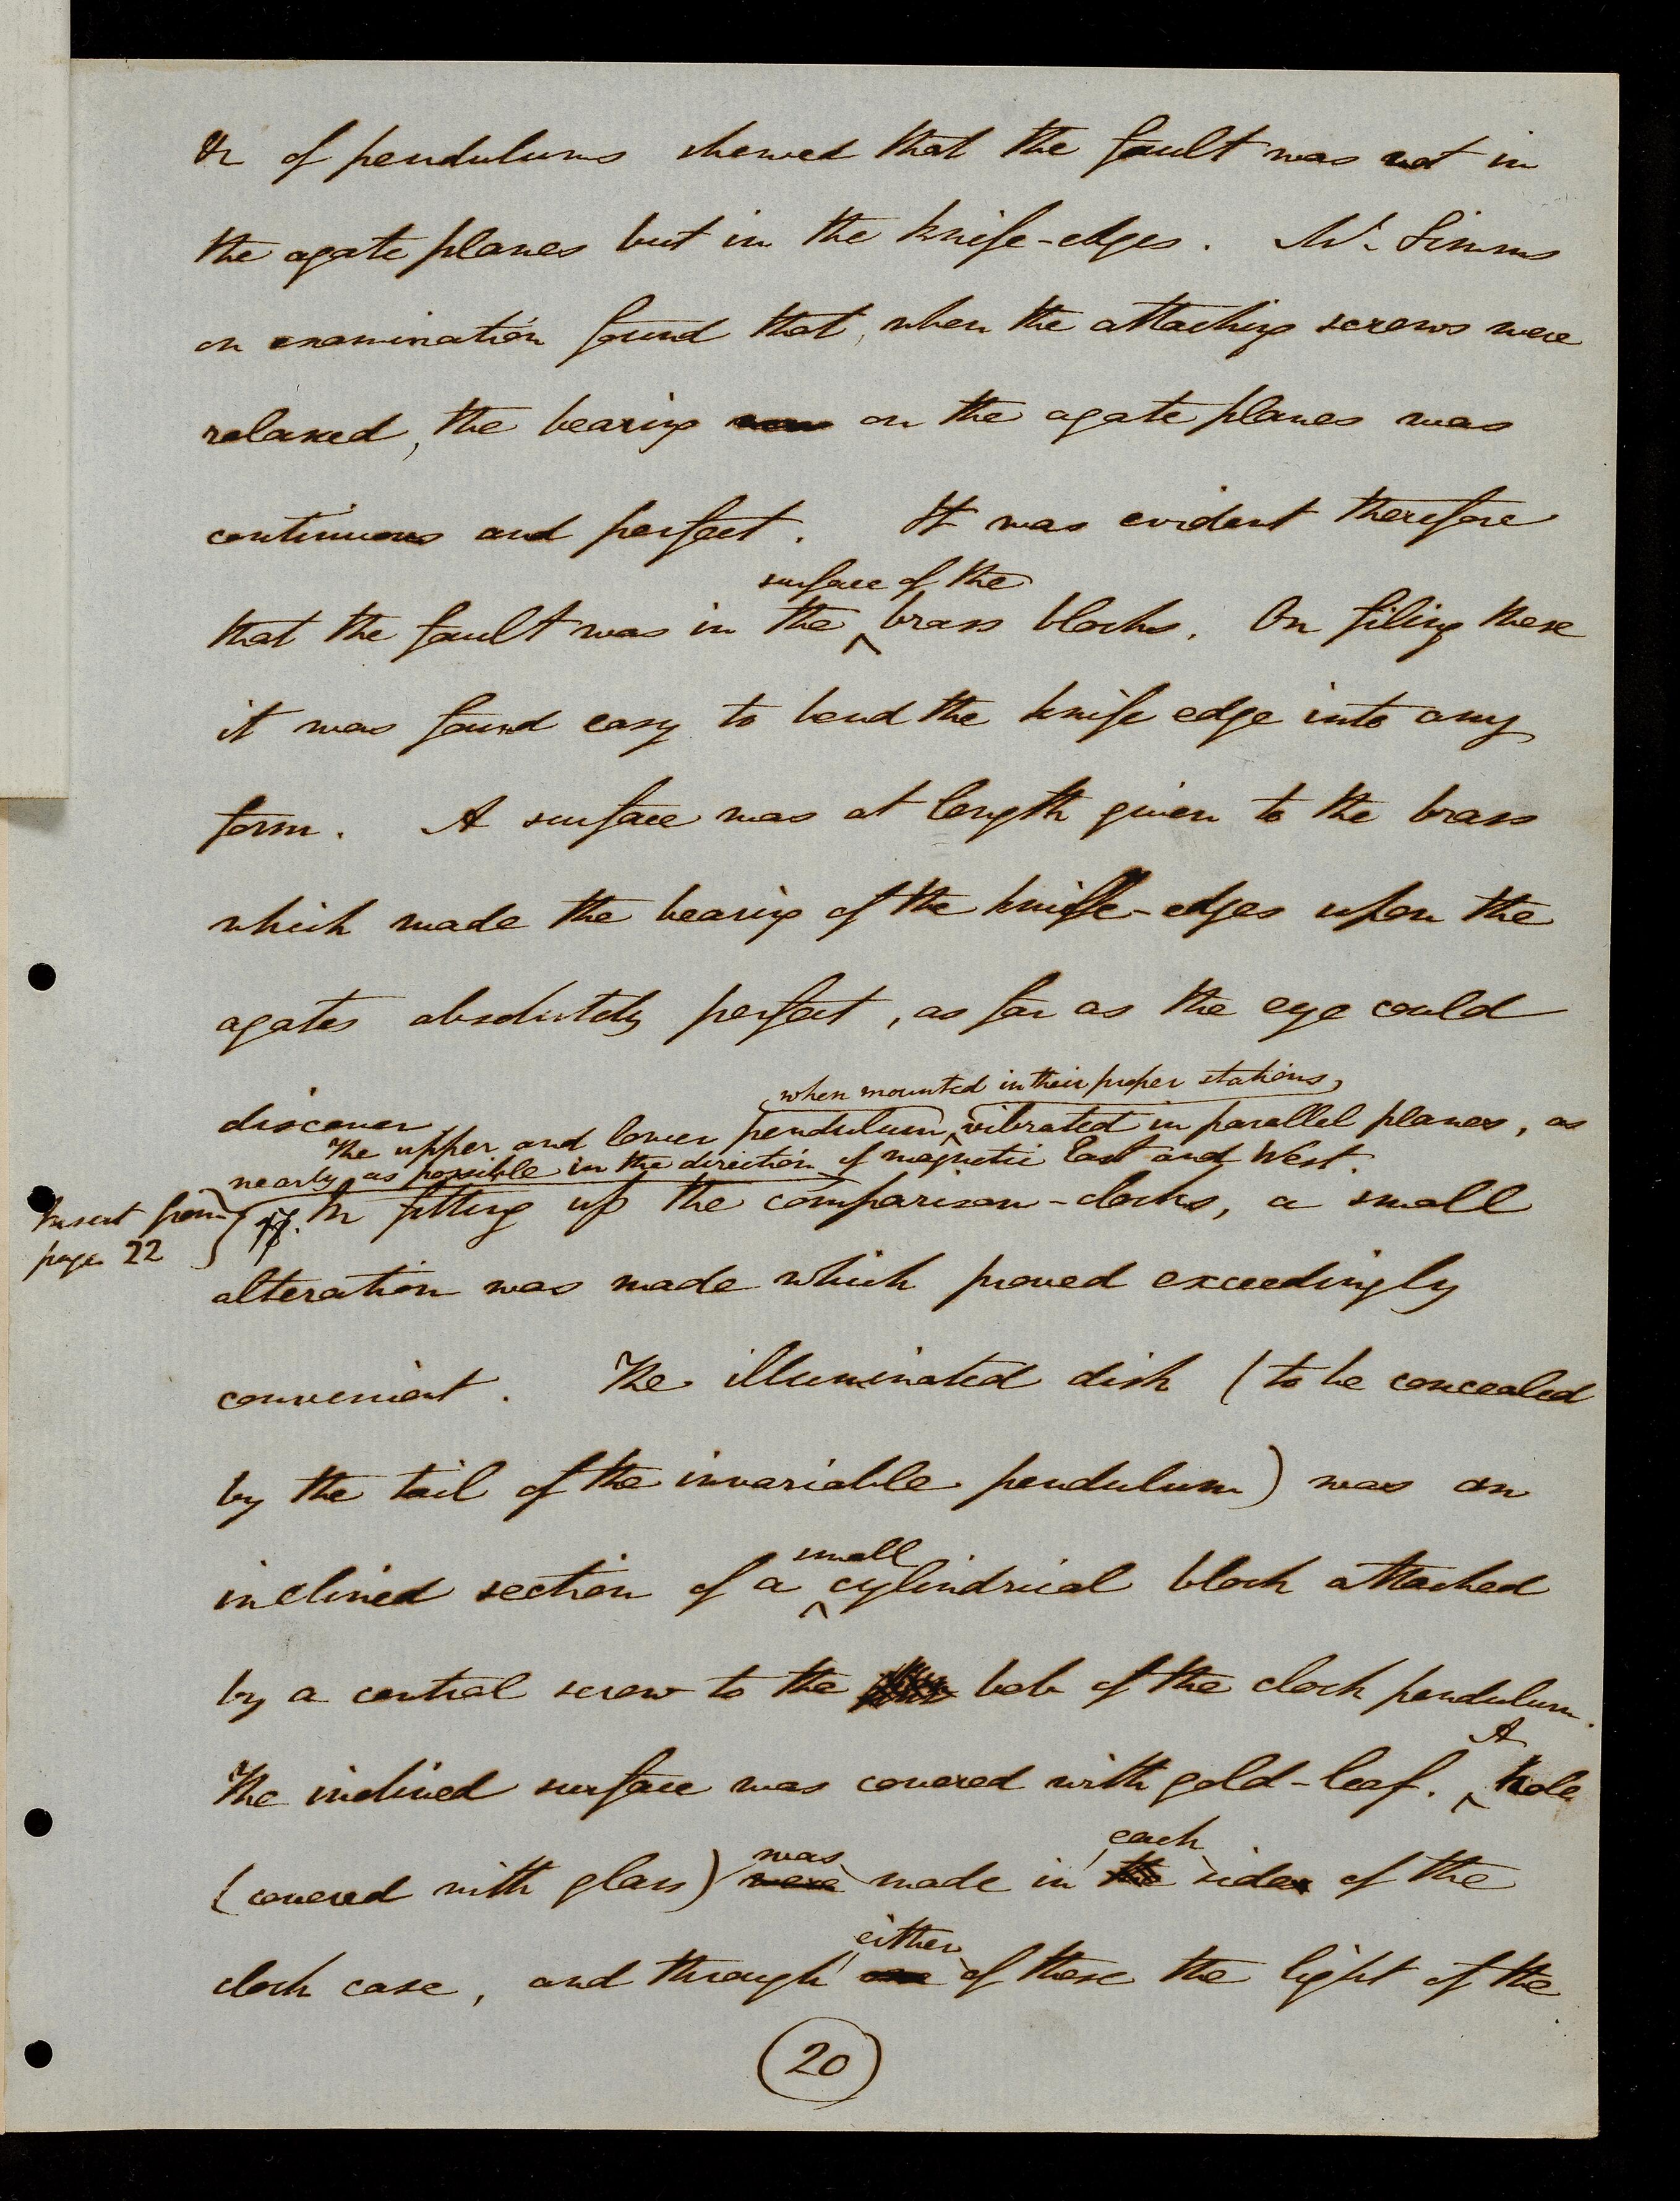 &c of pendulums shewed that the fault was not in
the agate planes but in the knife-edges. Mr Simms
on examination found that, when the attaching screws were
relaxed, the bearing on the agate planes was
continuous and perfect. It was evident therefore
surface of the
that the fault was in the ^ brass blocks. On filing these
it was found easy to bend the knife edge into any
form. A surface was at length given to the brass
which made the bearing of the knife-edges upon the
agates absolutely perfect, as far as the eye could
discover
when mounted in their proper stations,
The upper and lower pendulum ^ vibrated in parallel planes, as
nearly as possible in the direction of magnetic East and West.
Insert from
page 22
In fitting up the comparison-clocks, a small
alteration was made which proved exceedingly
convenient. The illuminated disk (to be concealed
by the tail of the invariable pendulum) was an
small
inclined section of a ^ cylindrical block attached
by a central screw to the bob of the clock pendulum.
A
The inclined surface was covered with gold-leaf. ^ hole
was each
(covered with glass) were made in the side of the
either
clock case, and through one of these the light of the
20